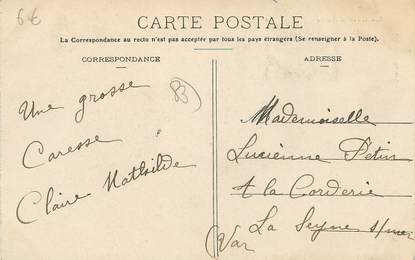 6€
CARTE POSTALE
La Correspondance au recto n'est pas acceptée par tous les pays étrangers (Se renseigner à la Poste).
CORRESPONDANCE
ADRESSE
83
Une grosse
Caresse
Claire Mathilde
Mademoiselle
Lucienne Petin
A la Corderie
La Seyne s/mer
(Var